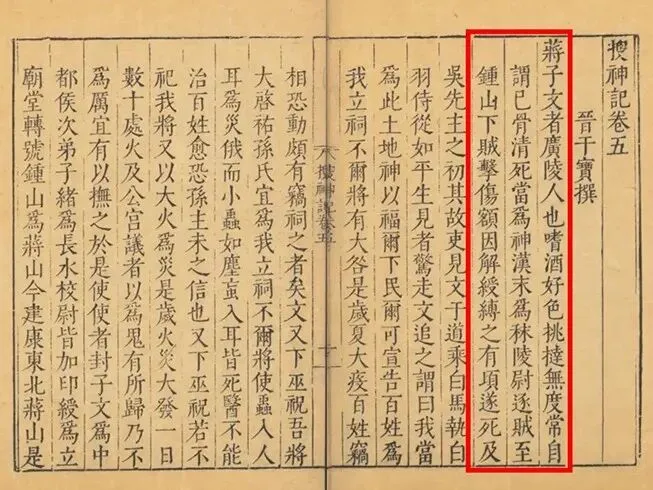 搜神記卷五
晉干寶撰
蔣子文者廣陵人也嗜酒好色挑撻無度常自
謂已骨清死當爲神漢末爲秣陵尉逐賊至
鍾山下賊擊傷額因解綬縛之有頃遂死及
吳先主之初其故吏見文于道乘白馬執白
羽侍從如平生見者驚走文追之謂曰我當
爲此土地神以福爾下民爾可宣告百姓爲
我立祠不爾將有大咎是歲夏大疫百姓竊
搜神記卷五
相恐動頗有竊祠之者矣文又下巫祝吾將
大啓祐孫氏宜爲我立祠不爾將使蟲入人
耳爲災俄而小蟲如塵䖟入耳皆死醫不能
治百姓愈恐孫主未之信也又下巫祝若不
祀我將又以大火爲災是歲火災大發一日
數十處火及公宮議者以爲鬼有所歸乃不
爲厲宜有以撫之於是使使者封子文爲中
都侯次弟子緒爲長水校尉皆加印綬爲立
廟堂轉號鍾山爲蔣山今建康東北蔣山是